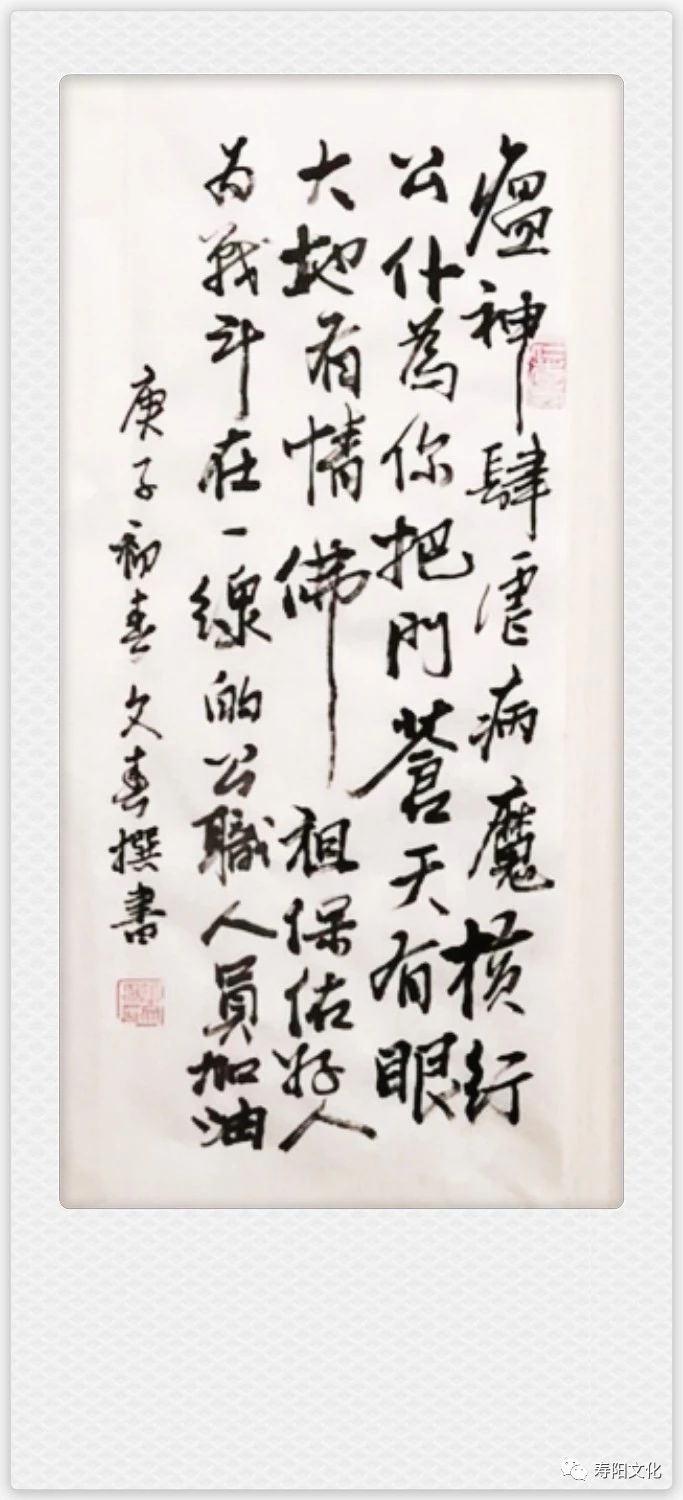 瘟神肆虐病魔横行
公仆為你把門蒼天有眼
大地有情佛祖保佑好人
为战斗在一線的公職人員加油
庚子初春文春撰書
寿阳文化